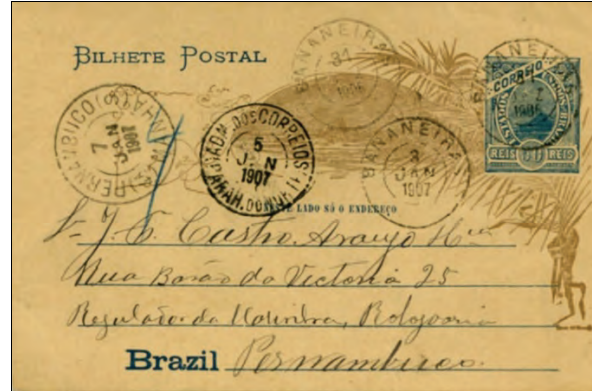 BILHETE POSTAL
BANANEIRAS
31
1906
BANANEIRAS
31
1906
CORREIO
REIS 50 REIS
PERNAMBUCO
7
JAN
1907
ADM. DOS CORREIOS
5
JAN
1907
BANANEIRAS
3
JAN
1907
LADO SÓ O ENDEREÇO
J. G. Castro Araujo
Rua Barão da Victoria 25
Regulador da Marinha, Relojoaria
Brazil Pernambuco.